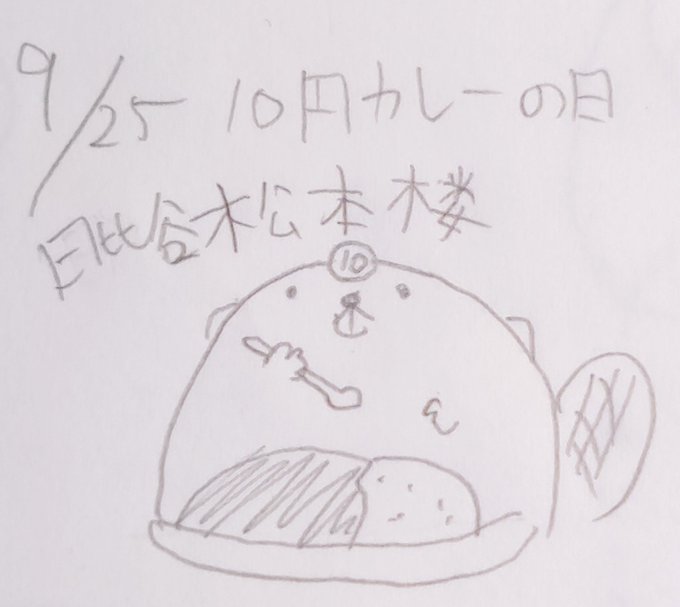 9/25 10円カレーの日
日比谷松本楼
10